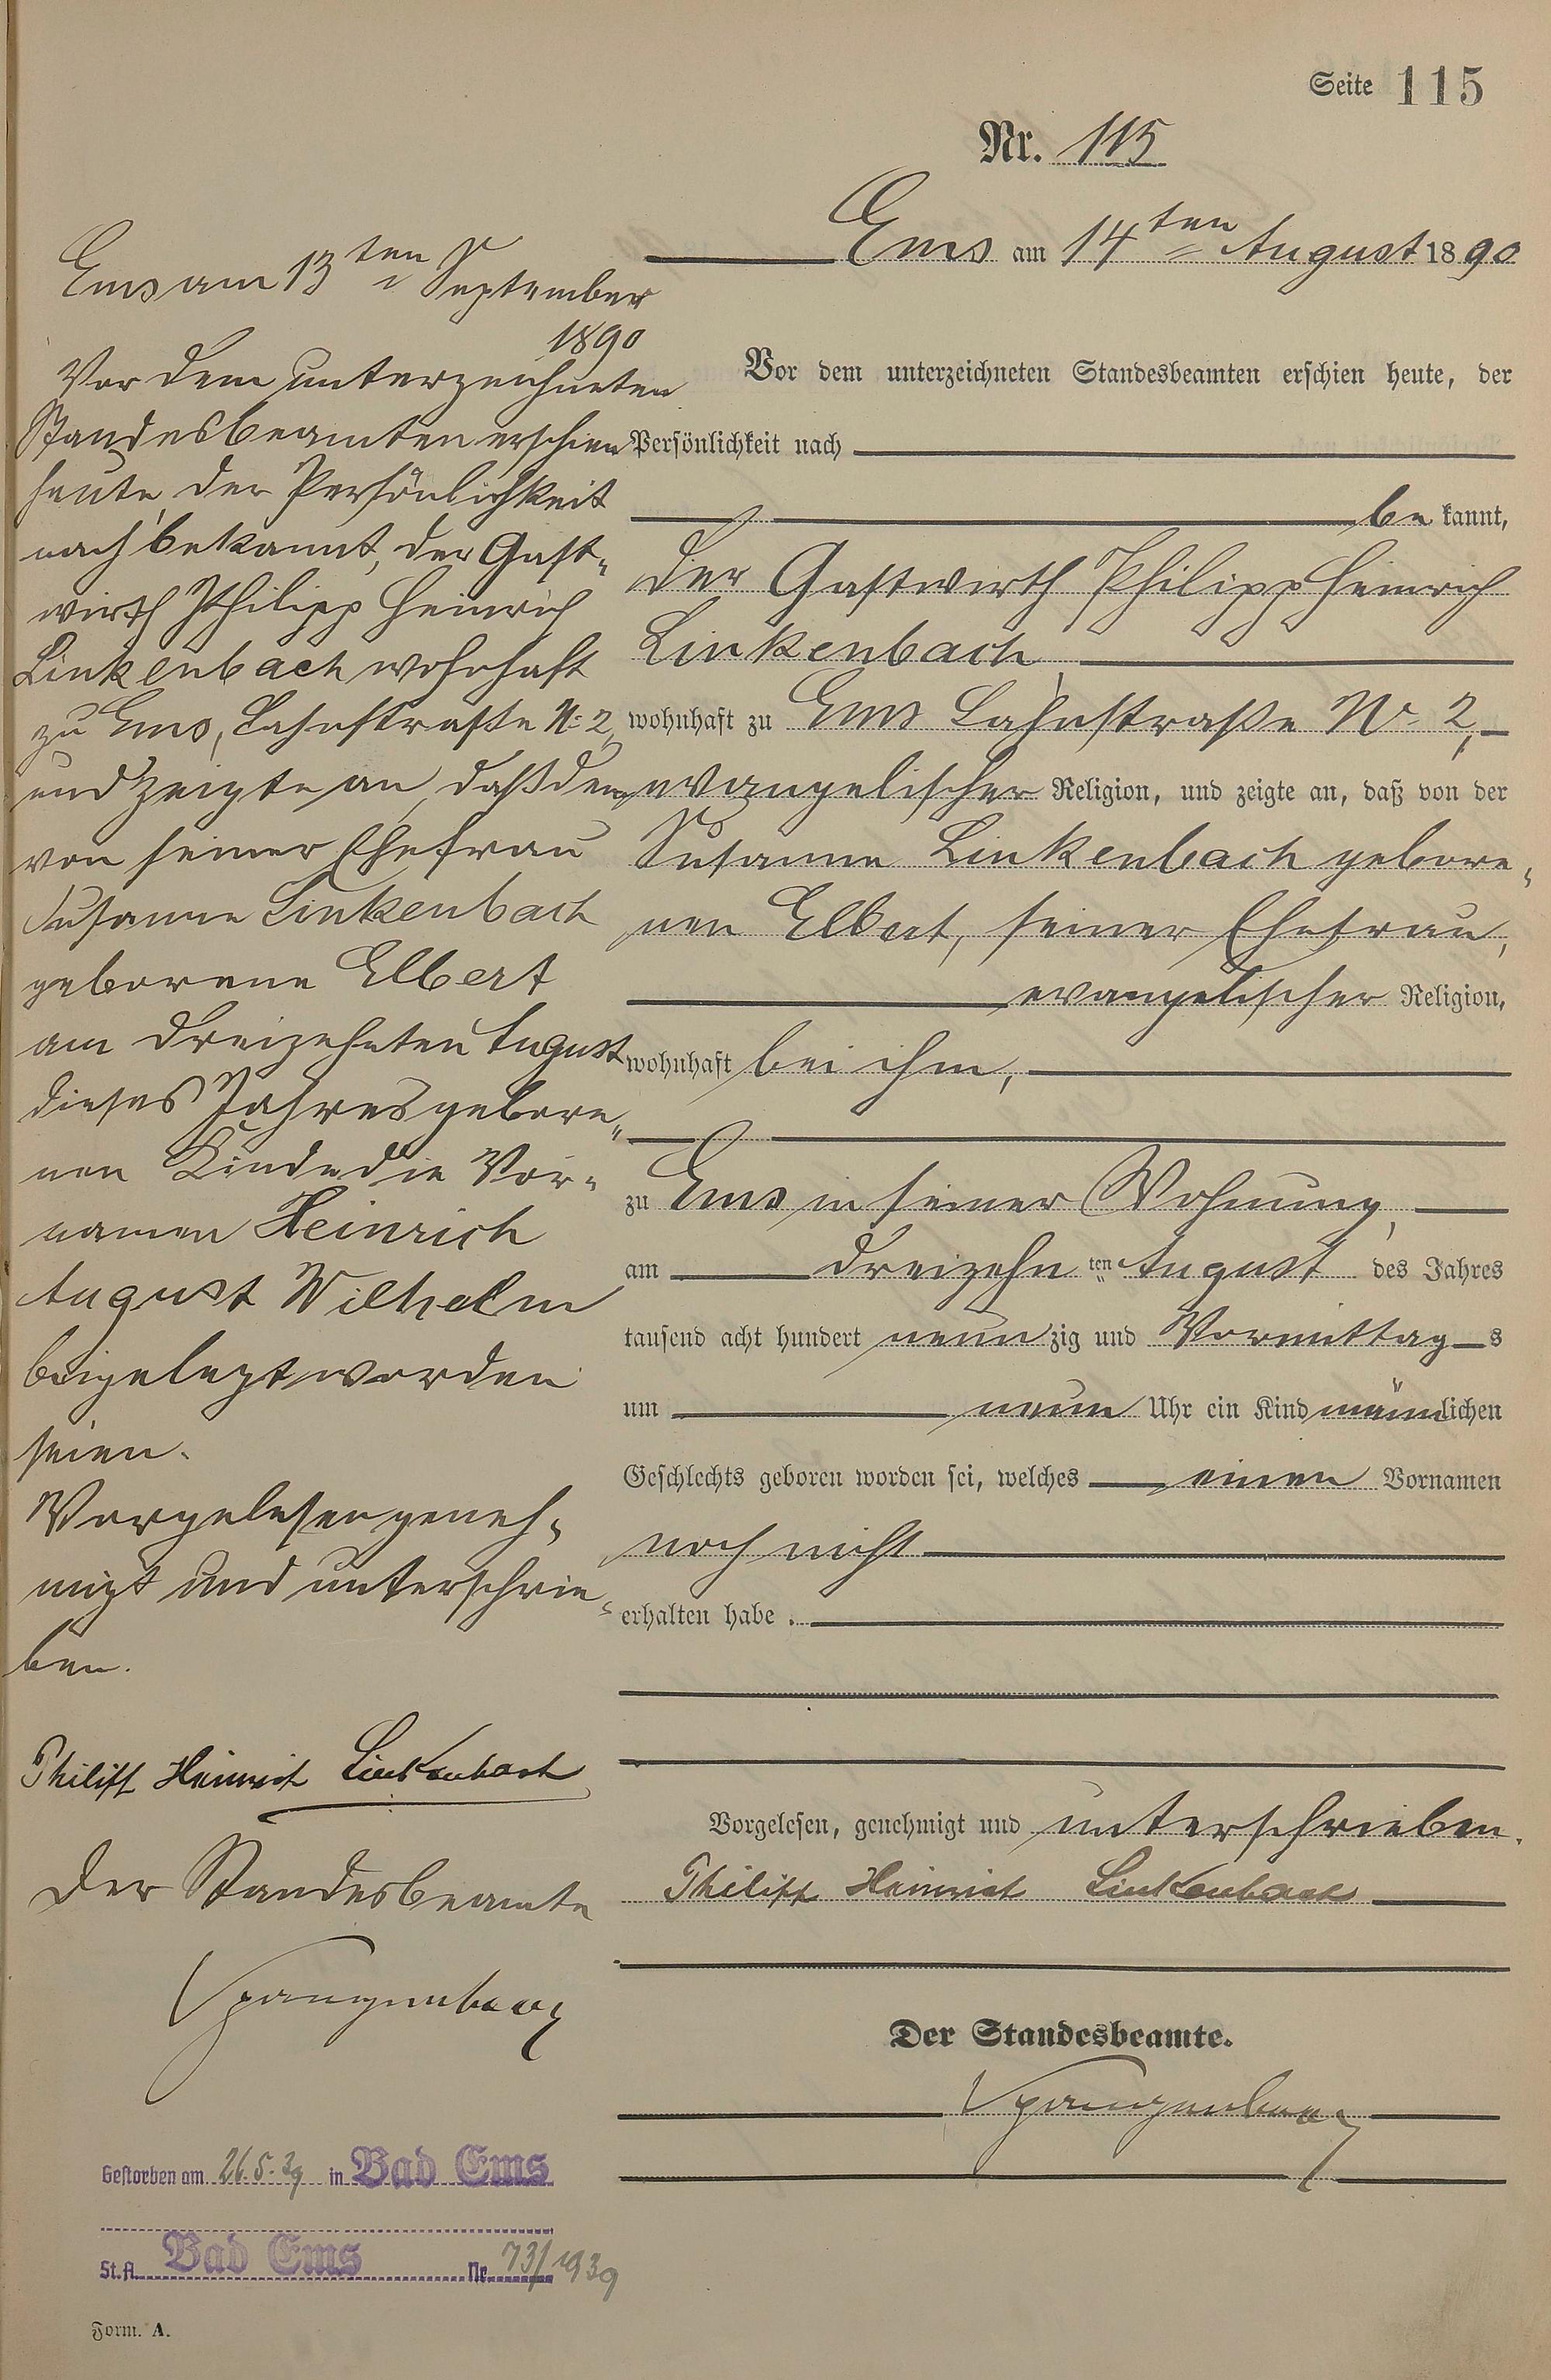 Seite 115
Nr. 115
Ems am 14ten August 1890
Vor dem unterzeichneten Standesbeamten erschien heute, der
Persönlichkeit nach
be kannt,
der Gastwirth Philipp Heinrich
Linkenbach,
wohnhaft zu Ems Lahnstraße No 2,
evangelischer Religion, und zeigte an, daß von der
Susanna Linkenbach gebore-
nen Elbert, seiner Ehefrau,
evangelischer Religion,
wohnhaft bei ihm,
zu Ems in seiner Wohnung,
am dreizehn ten August des Jahres
tausend acht hundert neun zig und Vormittag s
um neun Uhr ein Kind männlichen
Geschlechts geboren worden sei, welches einen Vornamen
noch nicht
erhalten habe.
Vorgelesen, genehmigt und unterschrieben.
Philipp Heinrich Linkenbach
Der Standesbeamte.
Spangenberg
Ems am 13ten September
1890
Vor dem unterzeichneten
Standesbeamten erschien
heute, der Persönlichkeit
nach bekannt, der Gast-
wirth Philipp Heinrich
Linkenbach wohnhaft
zu Ems, Lahnstraße No 2,
und zeigte an, daß dem
von seiner Ehefrau
Susanna Linkenbach
geborene Elbert
am dreizehnten August
dieses Jahres gebore-
nen Kinde die Vor-
namen Heinrich
August Wilhelm
beigelegt worden
seien.
Vorgelesen geneh-
migt und unterschrie-
ben.
Philipp Heinrich Linkenbach
Der Standesbeamte
Spangenberg
Gestorben am 26.5.39 in Bad Ems
St.A. Bad Ems Nr. 73/1939
Form. A.